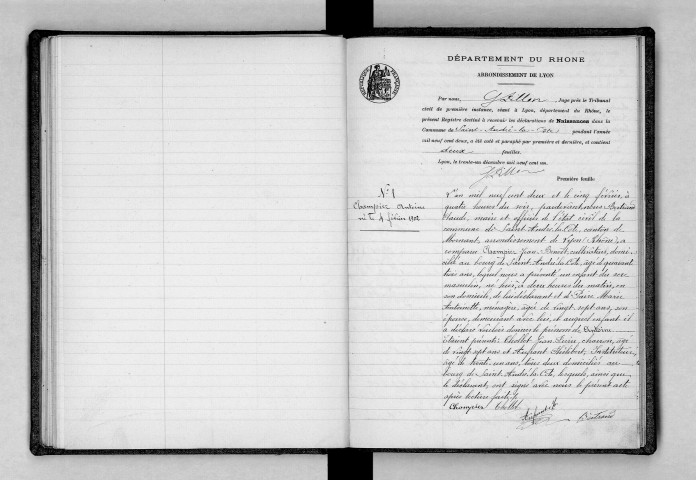 DÉPARTEMENT DU RHONE
ARRONDISSEMENT DE LYON
RÉPUBLIQUE FRANÇAISE
Par nous, Juge près le Tribunal
civil de première instance, séant à Lyon, département du Rhône, le
présent Registre destiné à recevoir les déclarations de Naissances dans la
Commune de Saint-André-la-Côte pendant l'année
mil neuf cent deux, a été coté et paraphé par première et dernière, et contient
deux feuilles.
Lyon, le trente-un décembre mil neuf cent un.
Première feuille
N° 1
Champier Antoine
né le 4 février 1902
L'an mil neuf cent deux et le cinq février, à
quatre heures du soir, pardevant nous Bertrand
Claude, maire et officier de l'état civil de la
commune de Saint-André-la-Côte, canton de
Mornant, arrondissement de Lyon (Rhône), a
comparu Champier Jean Benoit, cultivateur, domi-
cilié au bourg de Saint-André-la-Côte, âgé de quarante
trois ans, lequel nous a présenté un enfant du sexe
masculin, né hier, à deux heures du matin, en
son domicile, de lui déclarant et de Marie
Antoinette, ménagère, âgée de vingt sept ans, son
épouse, demeurant avec lui, et auquel enfant il
a déclaré vouloir donner le prénom de Antoine
étaient présents Chollet Jean Pierre, charron, âgé
de vingt sept ans et Philibert, Instituteur,
âgé de trente un ans, tous deux domiciliés au
bourg de Saint-André-la-Côte, lesquels, ainsi que
le déclarant, ont signé avec nous le présent acte
après lecture faite.
Champier Chollet Bertrand